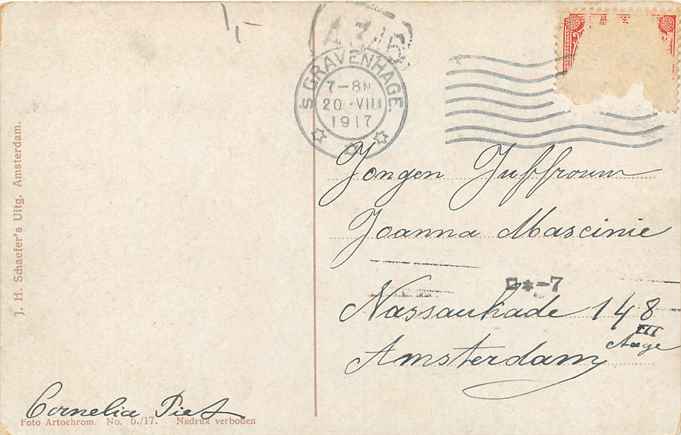 1,-
'S GRAVENHAGE
7-8N
20 VIII
1917
J. H. Schaefer's Uitg. Amsterdam.
Jongen Juffrouw
Joanna Mascinie
G*-7
Nassaukade 148 III
Amsterdam
Cornelia Piet
Foto Artochrom. No. 6./17. Nadruk verboden